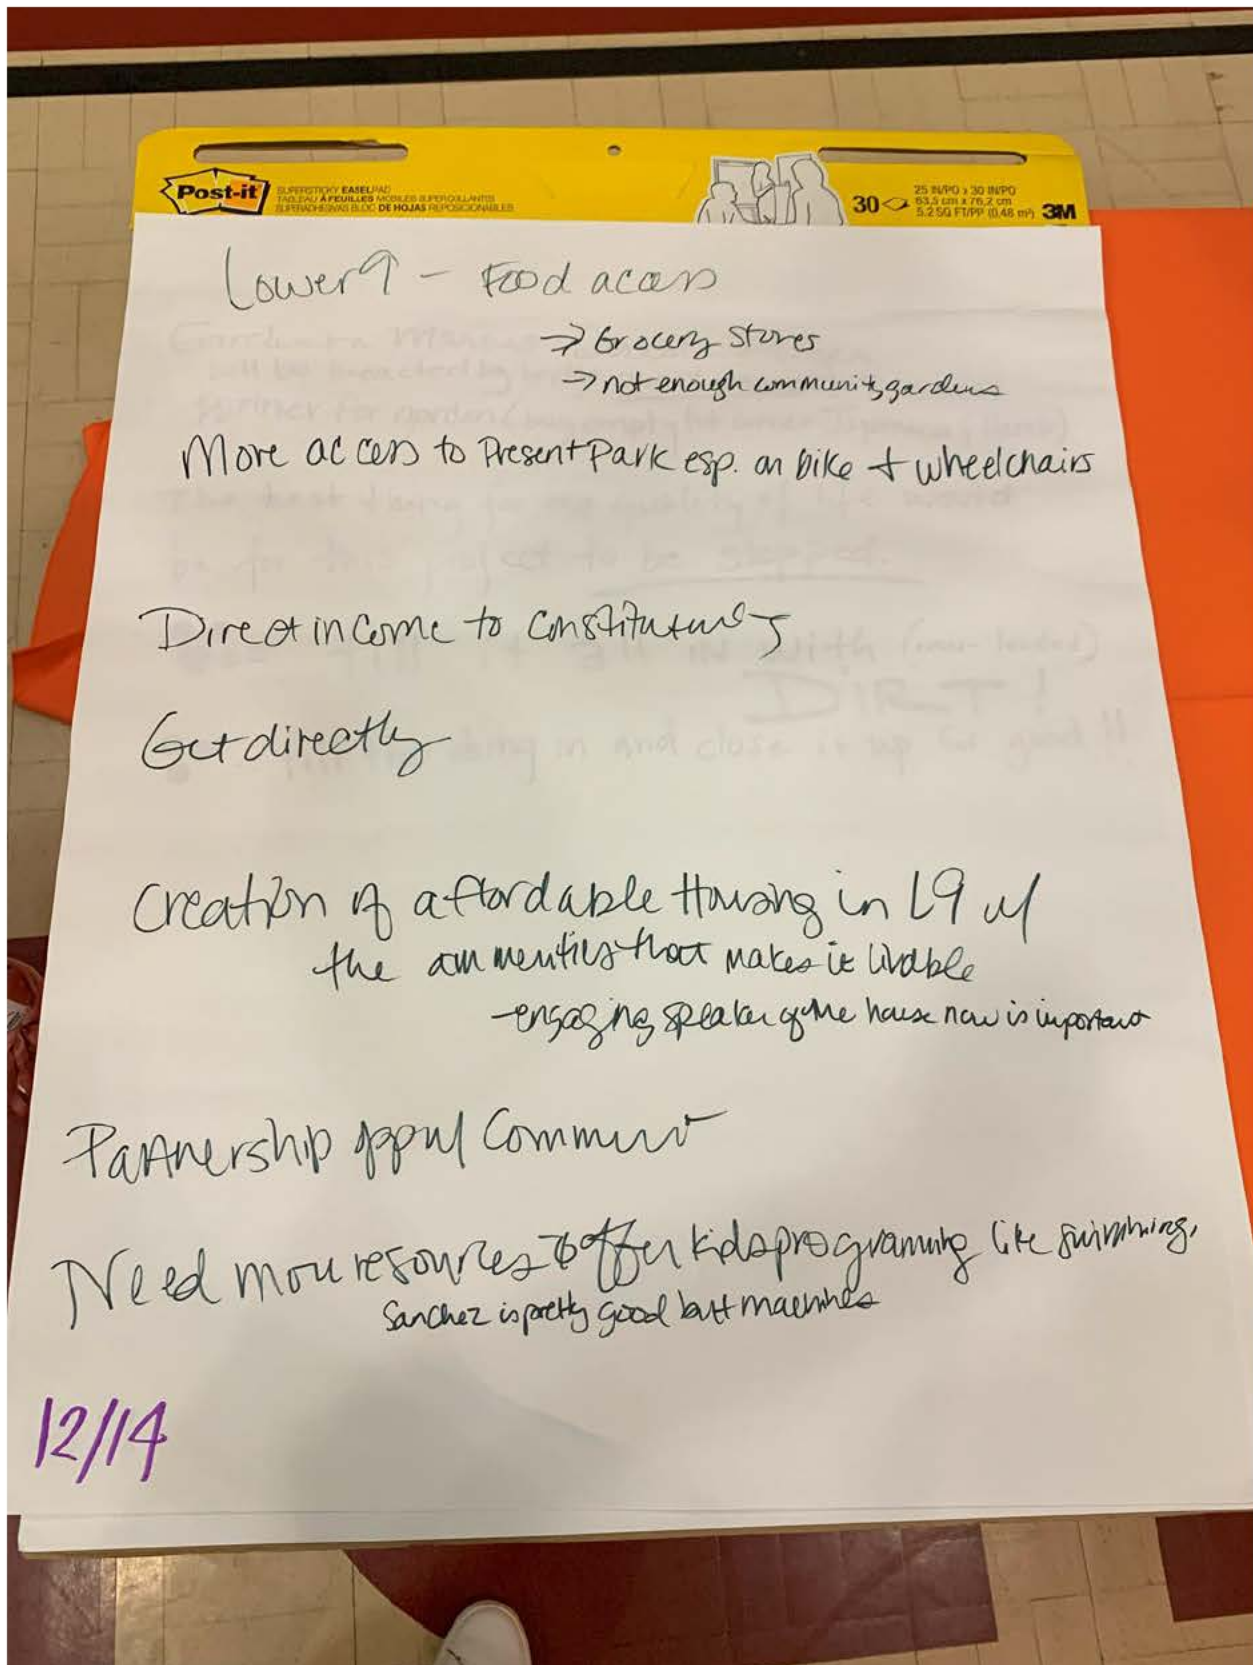 Post-it
SUPERSTICKY EASEL PAD
TABLEAU À FEUILLES MOBILES SUPERCOLLANTES
SUPERADHESIVAS BLOC DE HOJAS REPOSICIONABLES
30
25 IN/PO x 30 IN/PO
63,5 cm x 76,2 cm
5.2 SQ FT/PP (0,48 m²)
3M
Lower 9 - Food access
→ Grocery Stores
→ not enough community gardens
More access to Present Park esp. on bike + wheelchairs
Direct income to
Get directly
Creation of affordable Housing in L9 w/
the ammenities that makes it livable
- engaging speaker of the house now is important
Partnership
Need more resources to offer kids programing like swimming,
Sanchez is pretty good but machines
12/14
be for this project to be stopped.
DIRT!
in and close it up for good!!